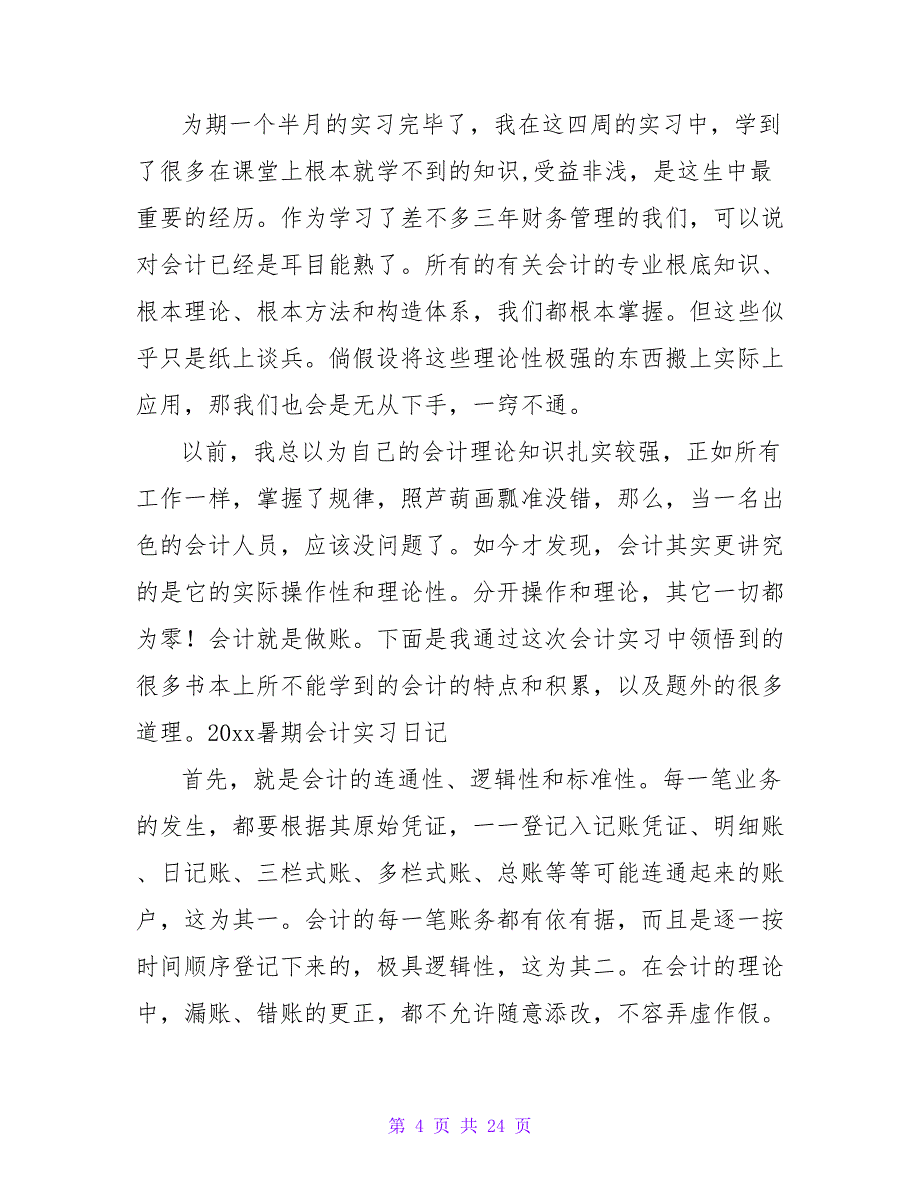 为期一个半月的实习完毕了，我在这四周的实习中，学到
了很多在课堂上根本就学不到的知识,受益非浅，是这生中最
重要的经历。作为学习了差不多三年财务管理的我们，可以说
对会计已经是耳目能熟了。所有的有关会计的专业根底知识、
根本理论、根本方法和构造体系，我们都根本掌握。但这些似
乎只是纸上谈兵。倘假设将这些理论性极强的东西搬上实际上
应用，那我们也会是无从下手，一窍不通。
以前，我总以为自己的会计理论知识扎实较强，正如所有
工作一样，掌握了规律，照芦葫画瓢准没错，那么，当一名出
色的会计人员，应该没问题了。如今才发现，会计其实更讲究
的是它的实际操作性和理论性。分开操作和理论，其它一切都
为零！会计就是做账。下面是我通过这次会计实习中领悟到的
很多书本上所不能学到的会计的特点和积累，以及题外的很多
道理。20xx暑期会计实习日记
首先，就是会计的连通性、逻辑性和标准性。每一笔业务
的发生，都要根据其原始凭证，一一登记入记账凭证、明细账
、日记账、三栏式账、多栏式账、总账等等可能连通起来的账
户，这为其一。会计的每一笔账务都有依有据，而且是逐一按
时间顺序登记下来的，极具逻辑性，这为其二。在会计的理论
中，漏账、错账的更正，都不允许随意添改，不容弄虚作假。
第 4 页 共 24 页